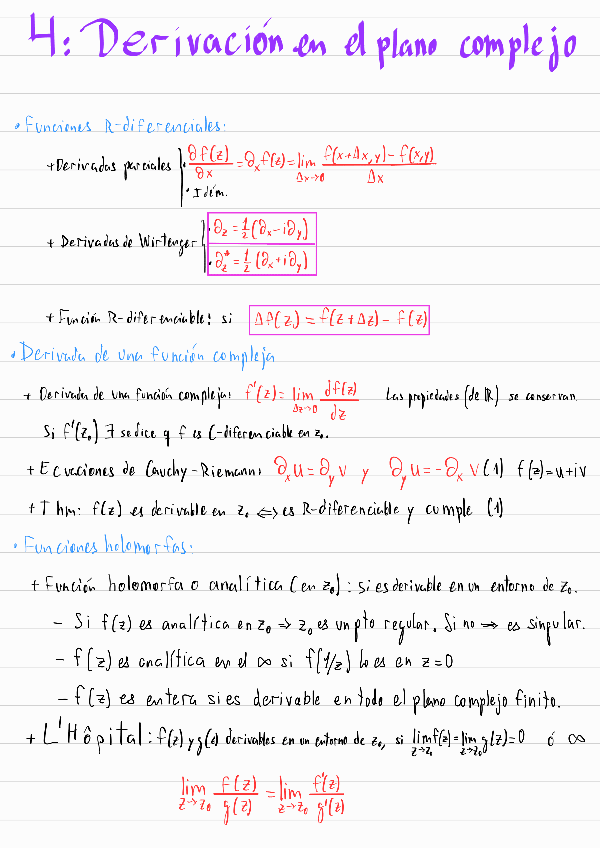 4: Derivación en el plano complejo
• Funciones R-diferenciales:
+ Derivadas parciales { • ∂f(z)/∂x = ∂ₓf(z) = lim Δx→0 f(x+Δx,y) - f(x,y) / Δx
• Idém.
+ Derivadas de Wirtenger { • ∂z = 1/2 (∂x - i∂y)
• ∂z* = 1/2 (∂x + i∂y)
+ Función R-diferenciable: si Δf(z) = f(z+Δz) - f(z)
• Derivada de una función compleja
+ Derivada de una función compleja: f'(z) = lim Δz→0 df(z)/dz Las propiedades (de ℝ) se conservan.
Si f'(z₀) ∃ se dice q f es C-diferenciable en z₀.
+ Ecuaciones de Cauchy-Riemann: ∂ₓu = ∂yv y ∂yu = -∂ₓv (1) f(z) = u+iv
+ Thm: f(z) es derivable en z₀ ⟺ es R-diferenciable y cumple (1)
• Funciones holomorfas:
+ Función holomorfa o analítica (en z₀): si es derivable en un entorno de z₀.
- Si f(z) es analítica en z₀ ⇒ z₀ es un pto regular. Si no ⇒ es singular.
- f(z) es analítica en el ∞ si f(1/z) lo es en z=0
- f(z) es entera si es derivable en todo el plano complejo finito.
+ L'Hôpital: f(z) y g(z) derivables en un entorno de z₀, si lim z→z₀ f(z) = lim z→z₀ g(z) = 0 ó ∞
lim z→z₀ f(z)/g(z) = lim z→z₀ f'(z)/g'(z)